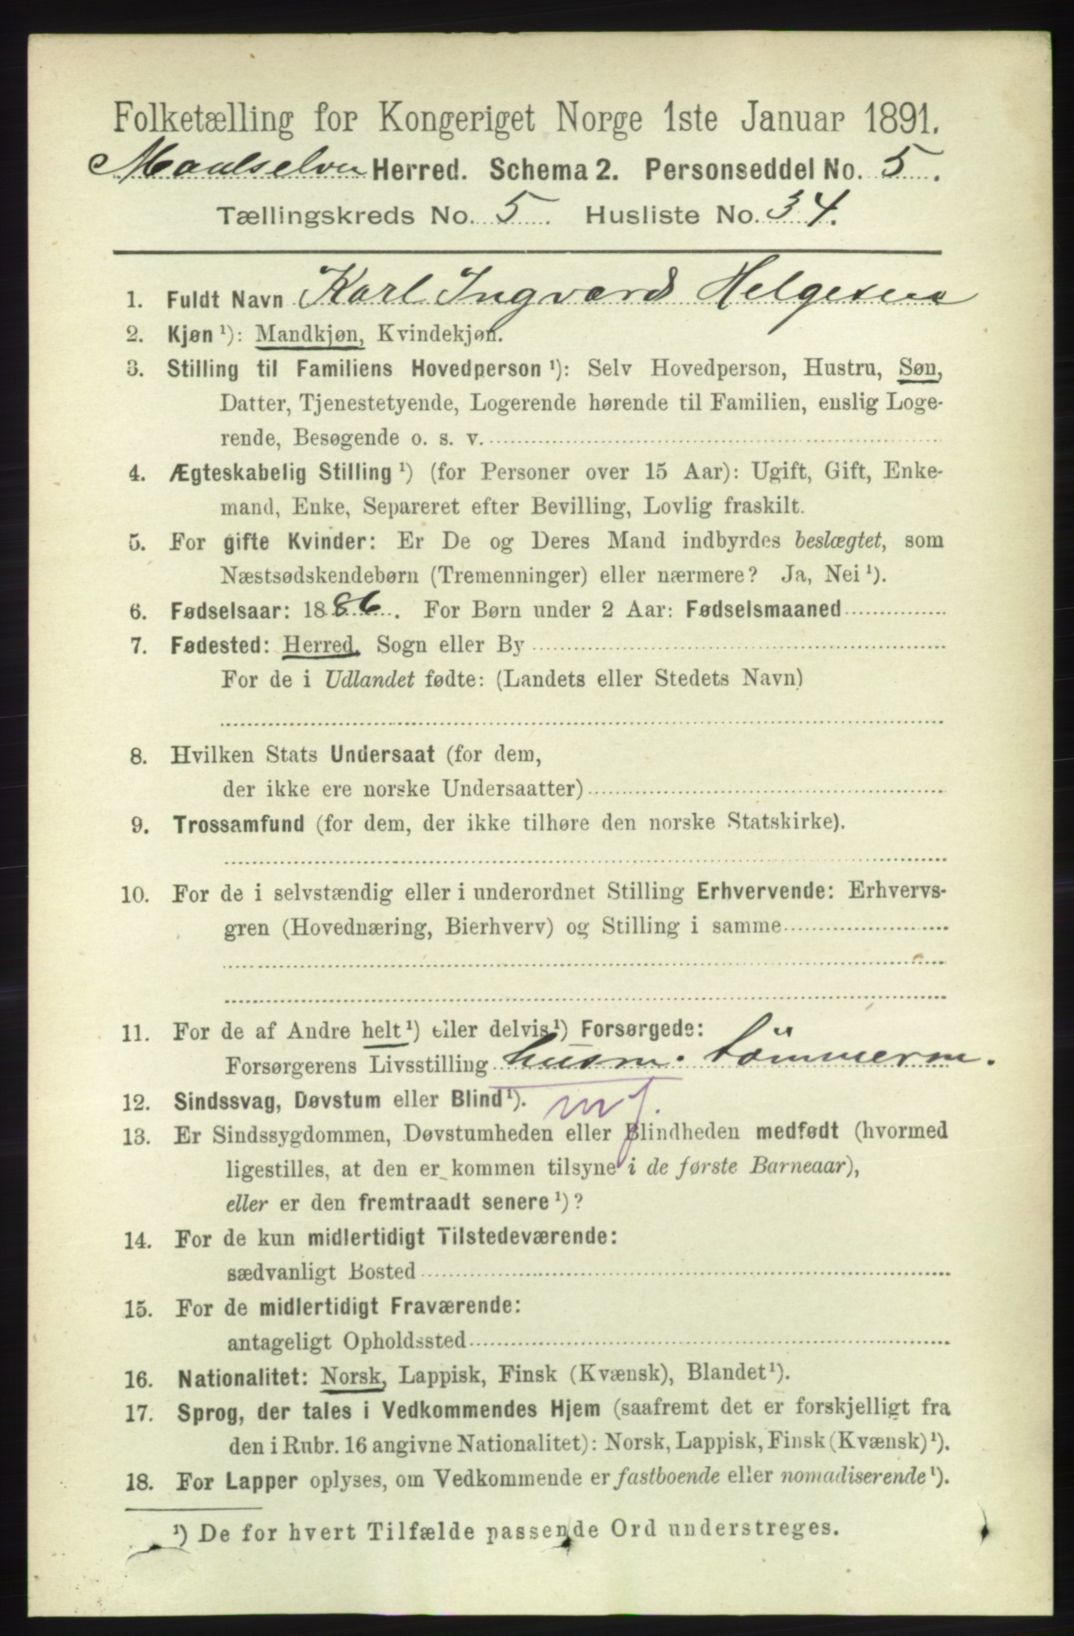 Folketælling for Kongeriget Norge 1ste Januar 1891.
Maalselven Herred. Schema 2. Personseddel No. 5.
Tællingskreds No. 5. Husliste No. 34.
1. Fuldt Navn Karl Ingvard Helgesen
2. Kjøn ¹): Mandkjøn, Kvindekjøn.
3. Stilling til Familiens Hovedperson ¹): Selv Hovedperson, Hustru, Søn,
Datter, Tjenestetyende, Logerende hørende til Familien, enslig Loge-
rende, Besøgende o. s. v.
4. Ægteskabelig Stilling ¹) (for Personer over 15 Aar): Ugift, Gift, Enke-
mand, Enke, Separeret efter Bevilling, Lovlig fraskilt.
5. For gifte Kvinder: Er De og Deres Mand indbyrdes beslægtet, som
Næstsødskendebørn (Tremenninger) eller nærmere? Ja, Nei ¹).
6. Fødselsaar: 1886. For Børn under 2 Aar: Fødselsmaaned
7. Fødested: Herred, Sogn eller By
For de i Udlandet fødte: (Landets eller Stedets Navn)
8. Hvilken Stats Undersaat (for dem,
der ikke ere norske Undersaatter)
9. Trossamfund (for dem, der ikke tilhøre den norske Statskirke).
10. For de i selvstændig eller i underordnet Stilling Erhvervende: Erhvervs-
gren (Hovednæring, Bierhverv) og Stilling i samme
11. For de af Andre helt ¹) eller delvis ¹) Forsørgede:
Forsørgerens Livsstilling husm. tömmerm.
12. Sindssvag, Døvstum eller Blind ¹). mf.
13. Er Sindssygdommen, Døvstumheden eller Blindheden medfødt (hvormed
ligestilles, at den er kommen tilsyne i de første Barneaar),
eller er den fremtraadt senere ¹)?
14. For de kun midlertidigt Tilstedeværende:
sædvanligt Bosted
15. For de midlertidigt Fraværende:
antageligt Opholdssted
16. Nationalitet: Norsk, Lappisk, Finsk (Kvænsk), Blandet ¹).
17. Sprog, der tales i Vedkommendes Hjem (saafremt det er forskjelligt fra
den i Rubr. 16 angivne Nationalitet): Norsk, Lappisk, Finsk (Kvænsk) ¹).
18. For Lapper oplyses, om Vedkommende er fastboende eller nomadiserende ¹).
¹) De for hvert Tilfælde passende Ord understreges.